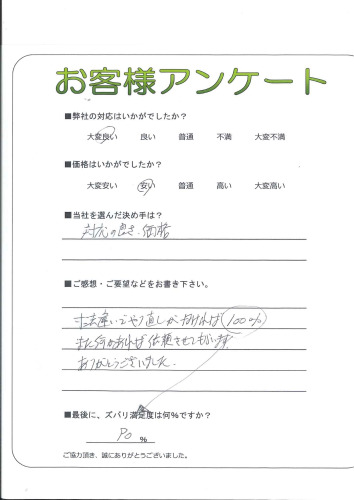 お客様アンケート
■弊社の対応はいかがでしたか?
大変良い 良い 普通 不満 大変不満
■価格はいかがでしたか?
大変安い 安い 普通 高い 大変高い
■当社を選んだ決め手は?
対応の良さ、価格
■ご感想・ご要望などをお書き下さい。
寸法違いでやり直しがなければ 100%
また何かあれば依頼させてもらいます
ありがとうございました。
■最後に、ズバリ満足度は何%ですか?
90 %
ご協力頂き、誠にありがとうございました。